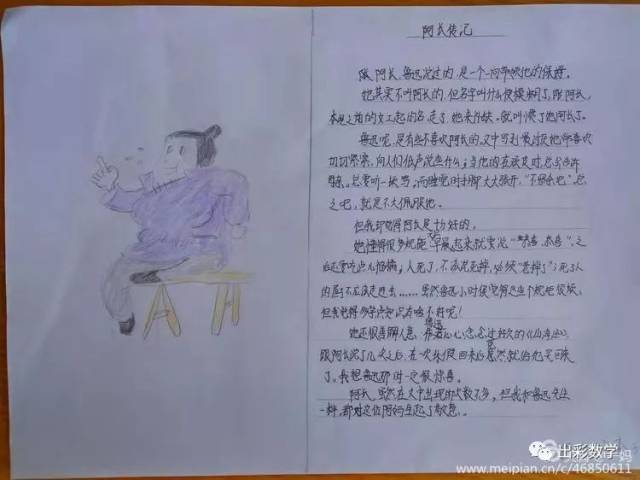 阿长传记
跟阿长,鲁迅说过的,是一个一向带领他的保姆。
她其实不叫阿长的,但名字叫什么便模糊了,跟阿长,
本是之前的女工起的名,走了,她来补缺。就叫惯了她阿长了。
鲁迅呢,是有些不喜欢阿长的。文中写到最讨厌她常喜欢
切切察察,向人们低声说些什么;
总要听一块骂;而睡觉时手脚大大张开,
之吧,就是不大佩服她。
但我却觉得阿长是十分好的。
她懂得很多规矩,早晨起来就要说“恭喜,恭喜”,之
后还要吃点儿福橘;人死了,不亦说死掉,必须“老掉了”;死了人
的屋子不应该走进去……虽然鲁迅小时候觉得这些个规矩很烦,
但我觉得多学点知识有啥不好呢!
她还很善解人意,鲁迅心心念念过好久的《山海经》,
跟阿长说了几次之后,在一次休假回来后竟然就给他买回来
了。我想鲁迅那时一定很惊喜。
阿长,虽然在文中出现的次数不多,但我和鲁迅先生
一样,都对这位阿妈生起了敬意。
出彩数学
妈
www.meipian.cn/c/46850611